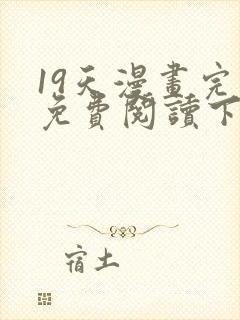 19天漫畫完
免費閱讀下
宿土